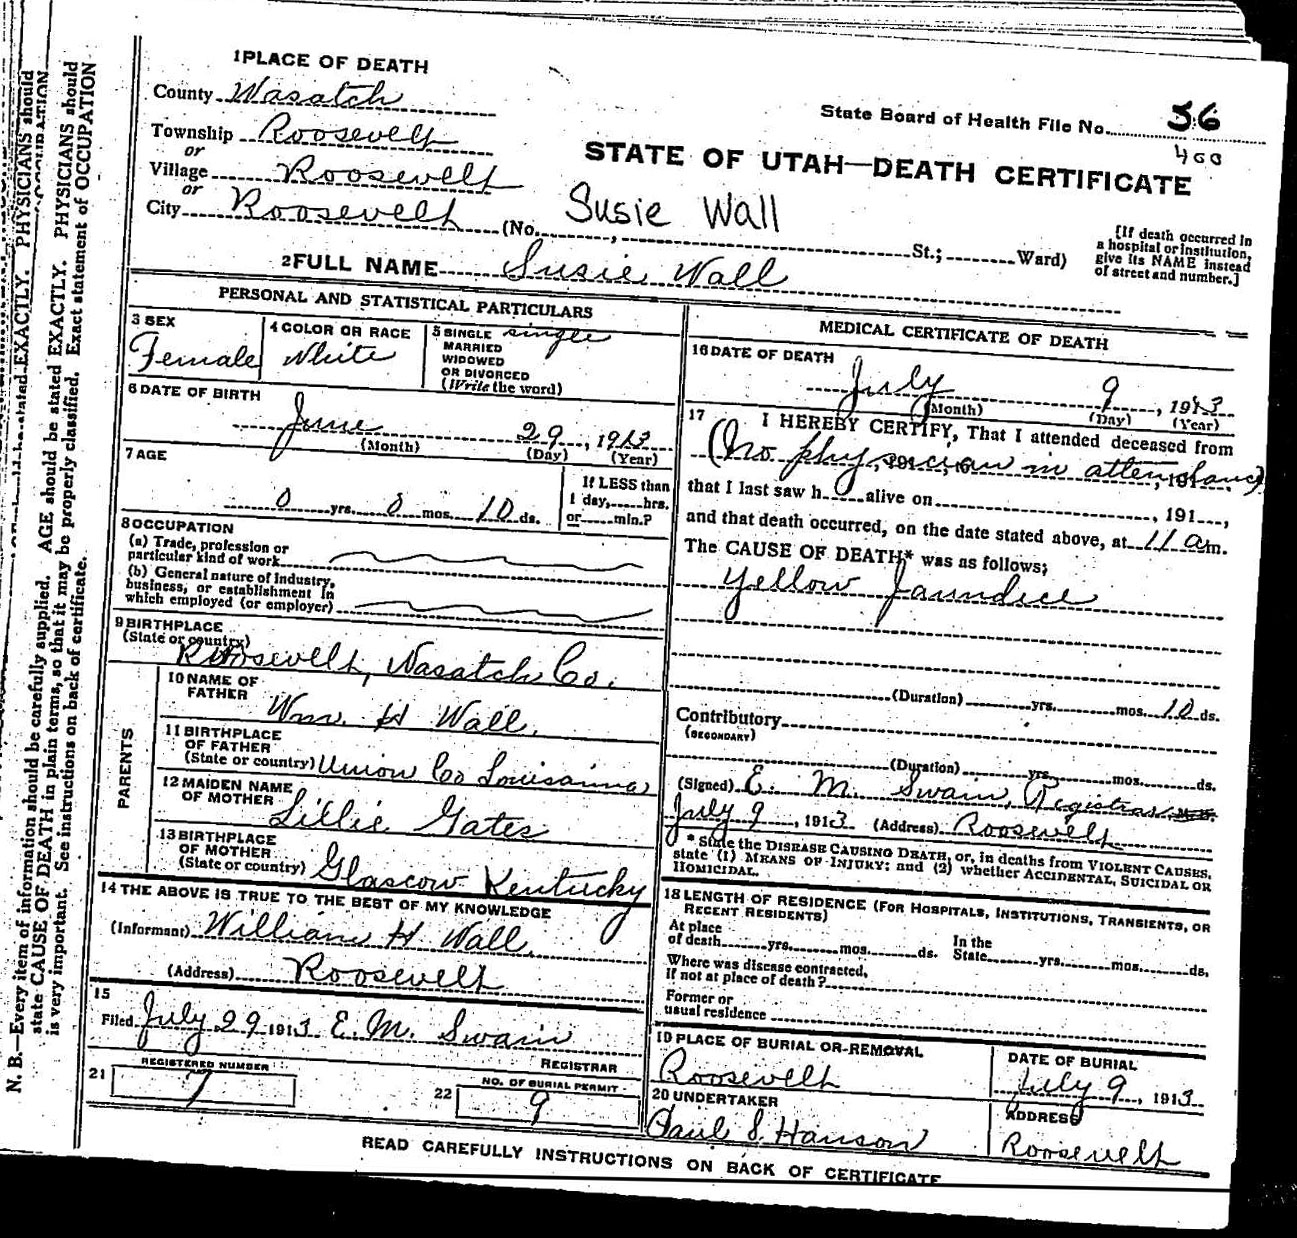 1 PLACE OF DEATH
County Wasatch
Township Roosevelt
or
Village Roosevelt
or
City Roosevelt (No. , St.; Ward)
State Board of Health File No. 36
400
STATE OF UTAH—DEATH CERTIFICATE
Susie Wall
[If death occurred in
a hospital or institution,
give its NAME instead
of street and number.]
2 FULL NAME Susie Wall
PERSONAL AND STATISTICAL PARTICULARS
3 SEX
Female
4 COLOR OR RACE
White
5 SINGLE single
MARRIED
WIDOWED
OR DIVORCED
(Write the word)
6 DATE OF BIRTH
June 29, 1913
(Month) (Day) (Year)
7 AGE
0 yrs. 0 mos. 10 ds.
If LESS than
1 day, hrs.
or min.?
8 OCCUPATION
(a) Trade, profession or
particular kind of work
(b) General nature of industry,
business, or establishment in
which employed (or employer)
9 BIRTHPLACE
(State or country)
Roosevelt, Wasatch Co.
PARENTS
10 NAME OF
FATHER
Wm. H Wall.
11 BIRTHPLACE
OF FATHER
(State or country) Union Co Louisianna
12 MAIDEN NAME
OF MOTHER
Lillie Gates
13 BIRTHPLACE
OF MOTHER
(State or country) Glascow Kentucky
14 THE ABOVE IS TRUE TO THE BEST OF MY KNOWLEDGE
(Informant) William H Wall.
(Address) Roosevelt
15
Filed July 29 1913 E. M. Swain
REGISTRAR
21 REGISTERED NUMBER
7
22 NO. OF BURIAL PERMIT
9
MEDICAL CERTIFICATE OF DEATH
16 DATE OF DEATH
July 9, 1913
(Month) (Day) (Year)
17 I HEREBY CERTIFY, That I attended deceased from
(No physician in attendance)
that I last saw h alive on , 191 ,
and that death occurred, on the date stated above, at 11 a m.
The CAUSE OF DEATH* was as follows;
Yellow Jaundice
(Duration) yrs. mos. 10 ds.
Contributory
(SECONDARY)
(Duration) yrs. mos. ds.
(Signed) E. M. Swain, Registrar M.D.
July 9, 1913 (Address) Roosevelt
* State the DISEASE CAUSING DEATH, or, in deaths from VIOLENT CAUSES,
state (1) MEANS OF INJURY; and (2) whether ACCIDENTAL, SUICIDAL OR
HOMICIDAL.
18 LENGTH OF RESIDENCE (FOR HOSPITALS, INSTITUTIONS, TRANSIENTS, OR
RECENT RESIDENTS)
At place
of death yrs. mos. ds. In the
State yrs. mos. ds.
Where was disease contracted,
if not at place of death?
Former or
usual residence
19 PLACE OF BURIAL OR REMOVAL
Roosevelt
DATE OF BURIAL
July 9, 1913
20 UNDERTAKER
Paul S. Hanson
ADDRESS
Roosevelt
READ CAREFULLY INSTRUCTIONS ON BACK OF CERTIFICATE
N. B.—Every item of information should be carefully supplied. AGE should be stated EXACTLY. PHYSICIANS should
state CAUSE OF DEATH in plain terms, so that it may be properly classified. Exact statement of OCCUPATION
is very important. See instructions on back of certificate.